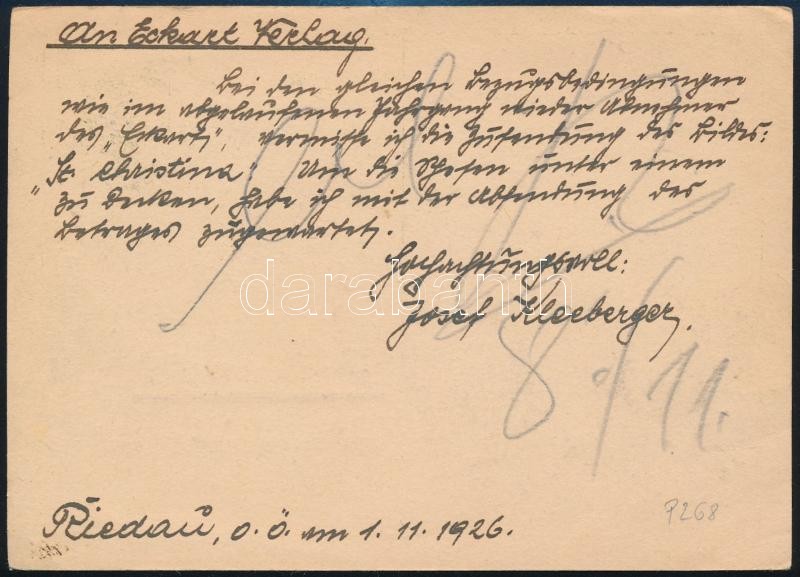 An Eckart Verlag.
Bei den gleichen Bezugsbedingungen
wie im abgelaufenen Jahrgang wieder Abnehmer
des „Eckart", vermisse ich die Zusendung des Bildes:
„St. Christina". Um die Spesen unter einem
zu decken, habe ich mit der Absendung des
Betrages zugewartet.
Hochachtungsvoll:
Josef Kleeberger.
darabanth
8./11.
Riedau, O.Ö. am 1.11.1926.
P268